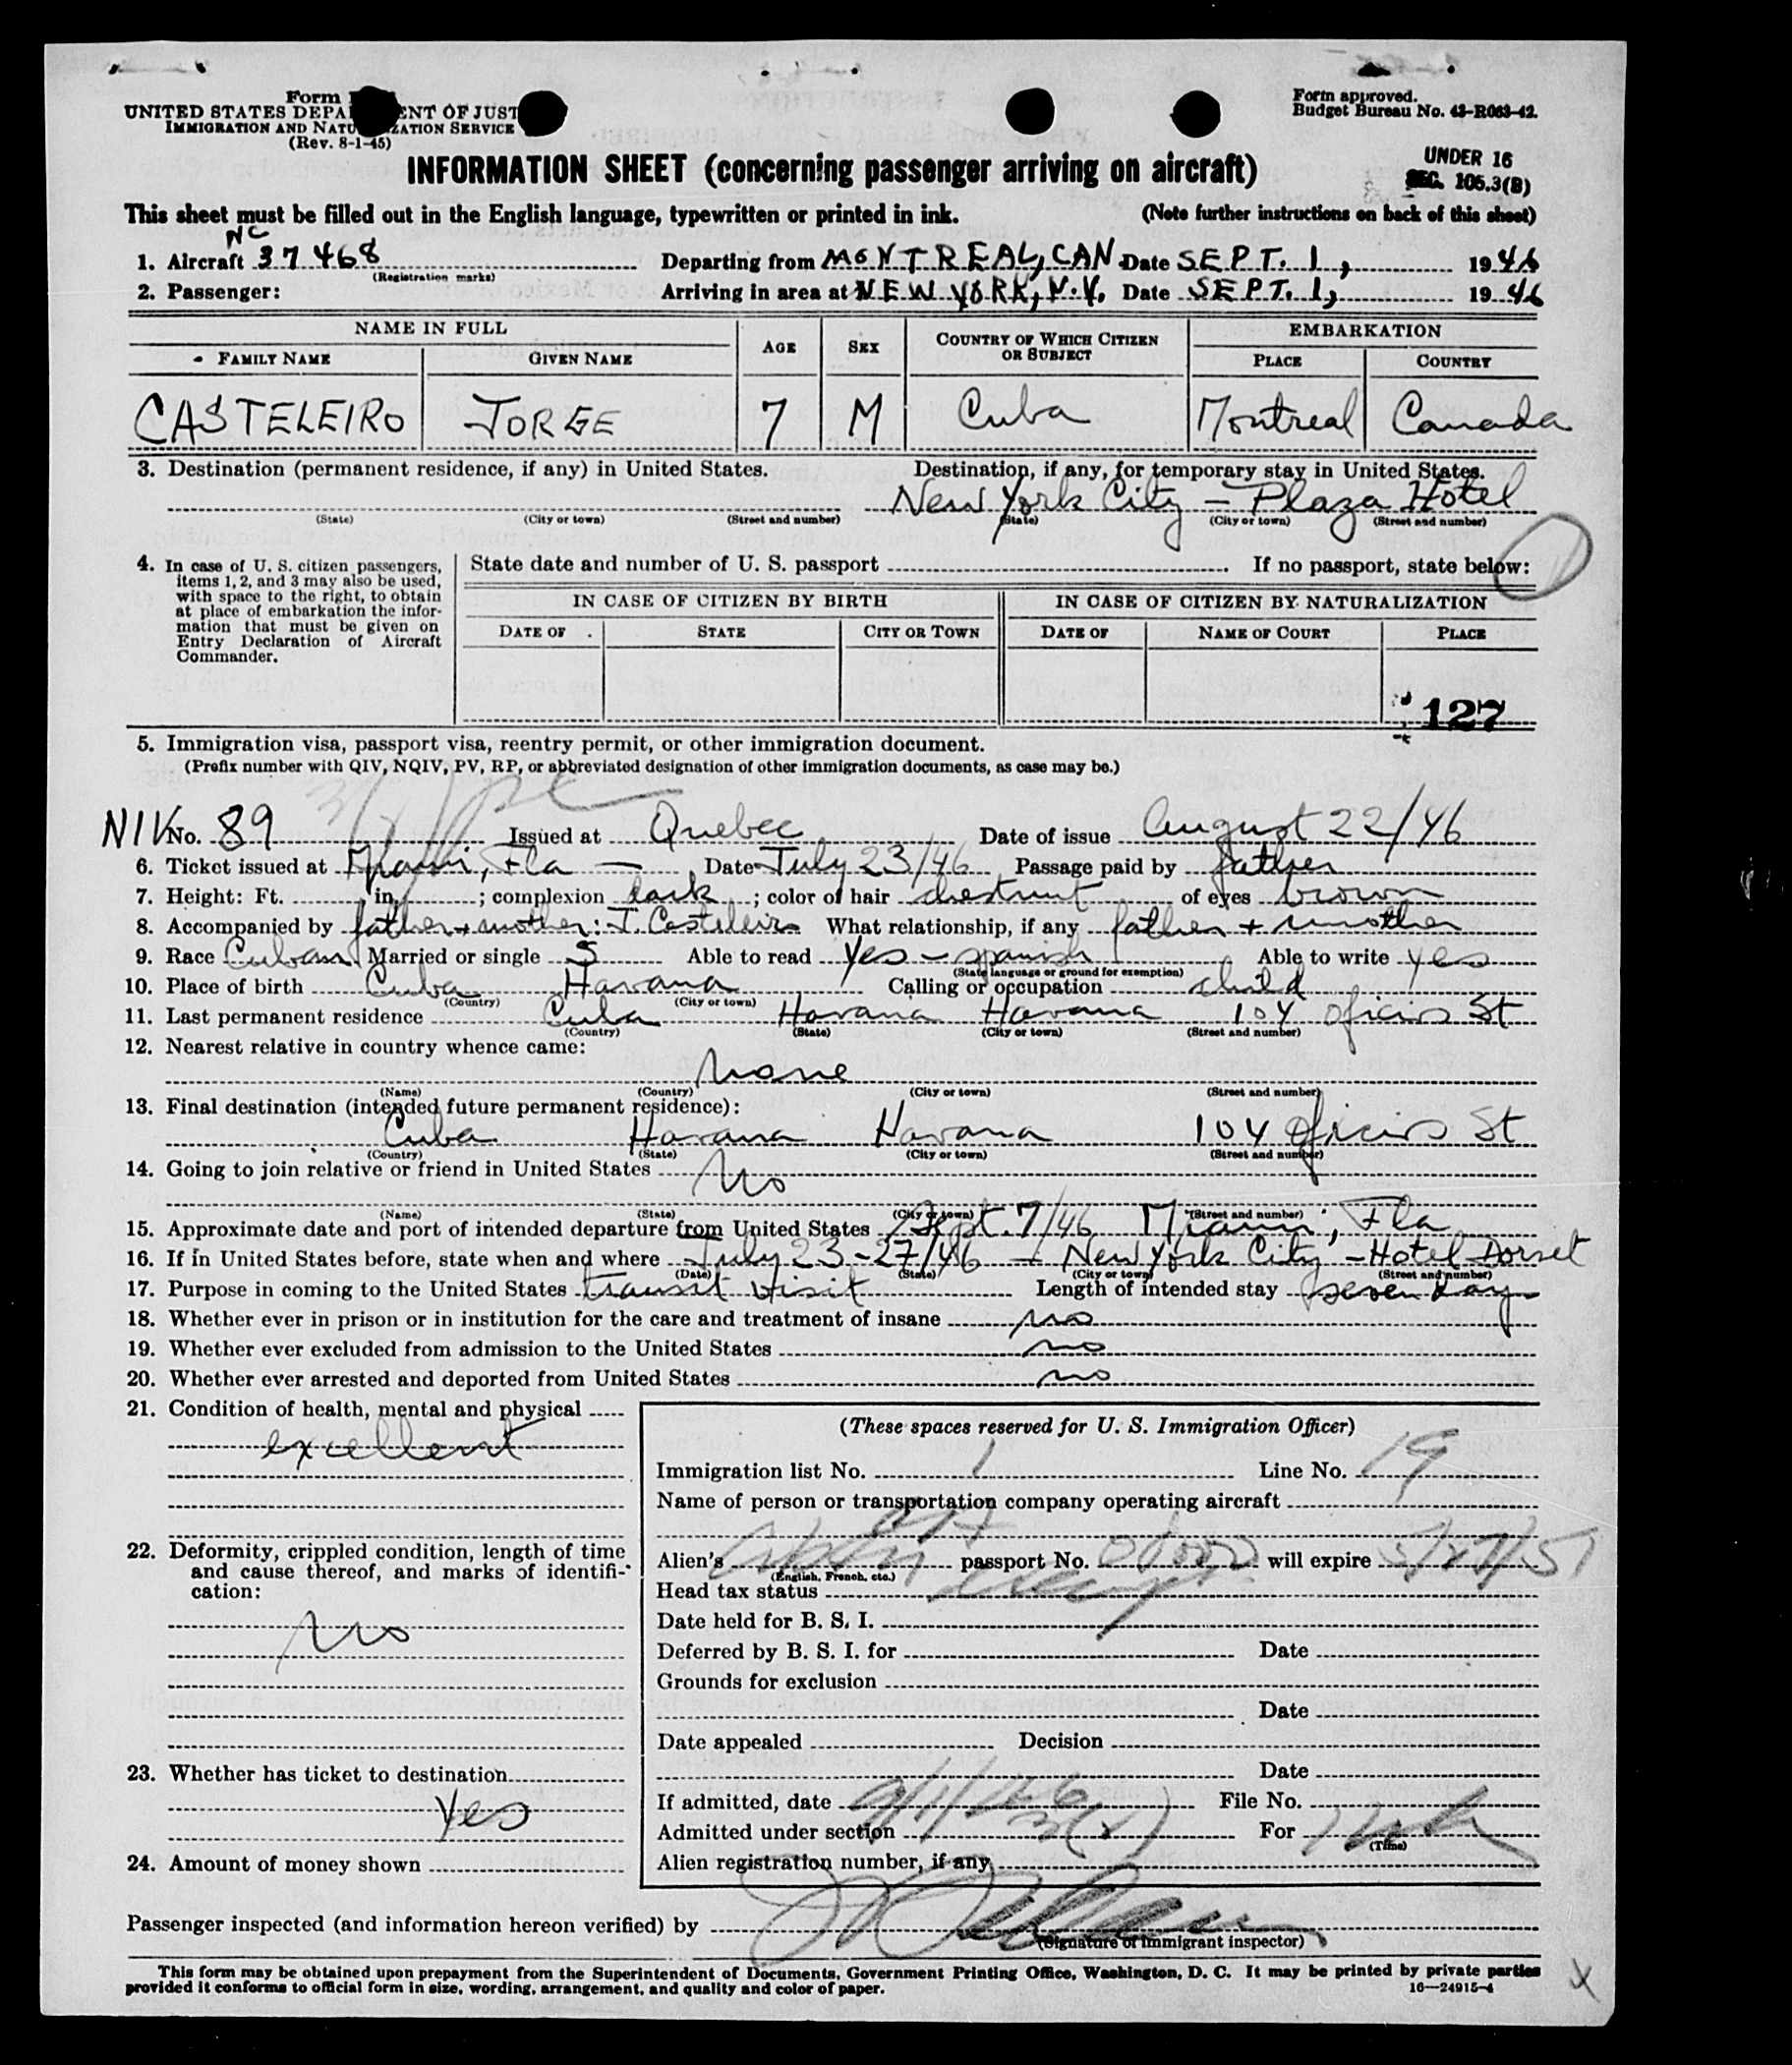 Form
UNITED STATES DEPA ENT OF JUST
IMMIGRATION AND NATU ZATION SERVICE
(Rev. 8-1-45)
Form approved.
Budget Bureau No. 43-R063-42.
INFORMATION SHEET (concerning passenger arriving on aircraft)
UNDER 16
SEC. 105.3(B)
This sheet must be filled out in the English language, typewritten or printed in ink. (Note further instructions on back of this sheet)
NC
1. Aircraft 37468 Departing from MONTREAL, CAN Date SEPT. 1, 1946
(Registration marks)
2. Passenger: Arriving in area at NEW YORK, N.Y. Date SEPT. 1, 1946
NAME IN FULL AGE SEX COUNTRY OF WHICH CITIZEN OR SUBJECT EMBARKATION
FAMILY NAME GIVEN NAME PLACE COUNTRY
CASTELEIRO JORGE 7 M Cuba Montreal Canada
3. Destination (permanent residence, if any) in United States. Destination, if any, for temporary stay in United States.
New York City - Plaza Hotel
(State) (City or town) (Street and number) (State) (City or town) (Street and number)
4. In case of U. S. citizen passengers, items 1, 2, and 3 may also be used, with space to the right, to obtain at place of embarkation the information that must be given on Entry Declaration of Aircraft Commander.
State date and number of U. S. passport If no passport, state below:
IN CASE OF CITIZEN BY BIRTH IN CASE OF CITIZEN BY NATURALIZATION
DATE OF STATE CITY OR TOWN DATE OF NAME OF COURT PLACE
127
5. Immigration visa, passport visa, reentry permit, or other immigration document.
(Prefix number with QIV, NQIV, PV, RP, or abbreviated designation of other immigration documents, as case may be.)
NIV No. 89 Issued at Quebec Date of issue August 22/46
6. Ticket issued at Miami, Fla - Date July 23/46 Passage paid by father
7. Height: Ft. in. ; complexion dark ; color of hair chestnut of eyes brown
8. Accompanied by father + mother: J. Casteleiro What relationship, if any father + mother
9. Race Cuban Married or single S Able to read Yes - spanish Able to write yes
(State language or ground for exemption)
10. Place of birth Cuba Havana Calling or occupation child
(Country) (City or town)
11. Last permanent residence Cuba Havana Havana 104 Oficios St
(Country) (State) (City or town) (Street and number)
12. Nearest relative in country whence came:
None
(Name) (Country) (City or town) (Street and number)
13. Final destination (intended future permanent residence):
Cuba Havana Havana 104 Oficios St
(Country) (State) (City or town) (Street and number)
14. Going to join relative or friend in United States No
(Name) (State) (City or town) (Street and number)
15. Approximate date and port of intended departure from United States Sept. 7/46 Miami, Fla
16. If in United States before, state when and where July 23-27/46 - New York City - Hotel Dorset
(Date) (State) (City or town) (Street and number)
17. Purpose in coming to the United States transit visit Length of intended stay seven days
18. Whether ever in prison or in institution for the care and treatment of insane no
19. Whether ever excluded from admission to the United States no
20. Whether ever arrested and deported from United States no
21. Condition of health, mental and physical
excellent
22. Deformity, crippled condition, length of time and cause thereof, and marks of identification:
No
23. Whether has ticket to destination
Yes
24. Amount of money shown
(These spaces reserved for U. S. Immigration Officer)
Immigration list No. 1 Line No. 19
Name of person or transportation company operating aircraft
Alien's passport No. will expire
(English, French, etc.)
Head tax status
Date held for B. S. I.
Deferred by B. S. I. for Date
Grounds for exclusion
Date
Date appealed Decision
Date
If admitted, date 9/1/46 File No.
Admitted under section 3(2) For
(Time)
Alien registration number, if any
Passenger inspected (and information hereon verified) by
(Signature of immigrant inspector)
This form may be obtained upon prepayment from the Superintendent of Documents, Government Printing Office, Washington, D. C. It may be printed by private parties
provided it conforms to official form in size, wording, arrangement, and quality and color of paper.
16-24915-4